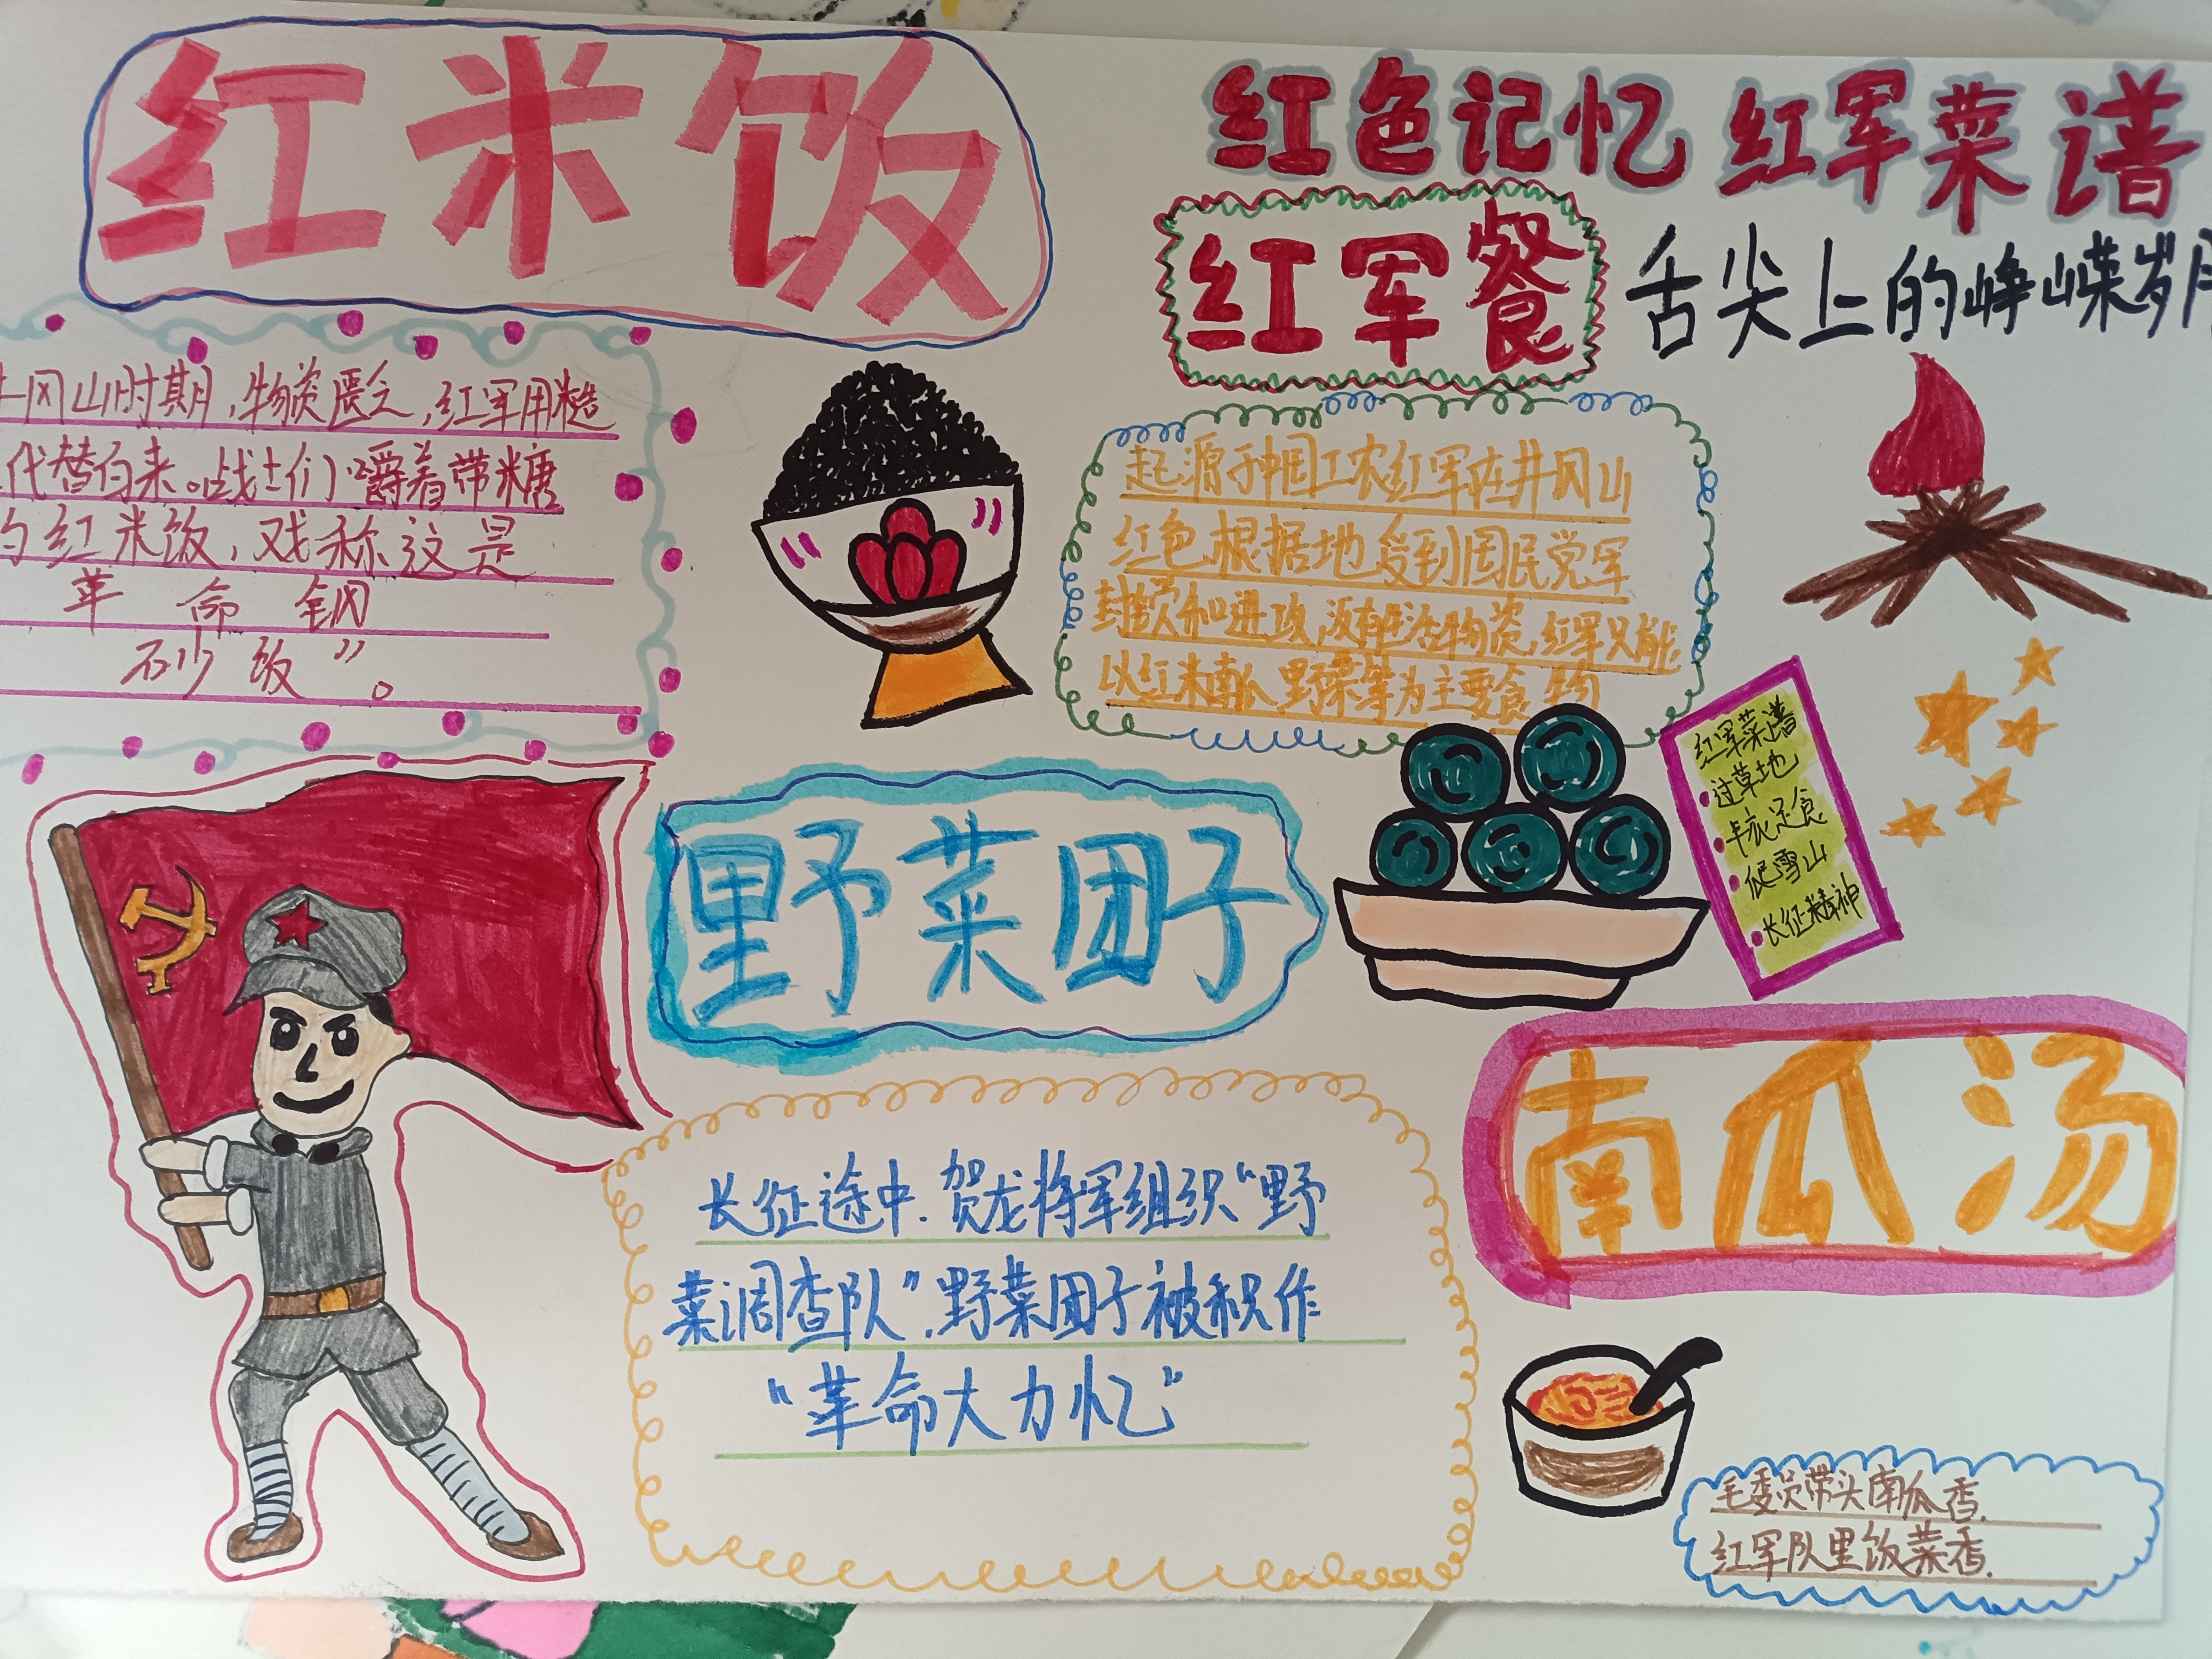 红米饭
红色记忆 红军菜谱
红军餐
舌尖上的峥嵘岁月
井冈山时期,物资匮乏,红军用糙
代替白来。战士们嚼着带糖
的红米饭,戏称这是
革命钢
砂饭”。
起源于中国工农红军在井冈山
红色根据地受到国民党军
封锁和进攻,没有生活物资,红军只能
以红米南瓜野菜等为主要食物
红军菜谱
过草地
丰衣足食
爬雪山
长征精神
野菜团子
长征途中.贺龙将军组织“野
菜调查队”.野菜团子被积作
“革命大力忆”
南瓜汤
毛委员带头南瓜香.
红军队里饭菜香.